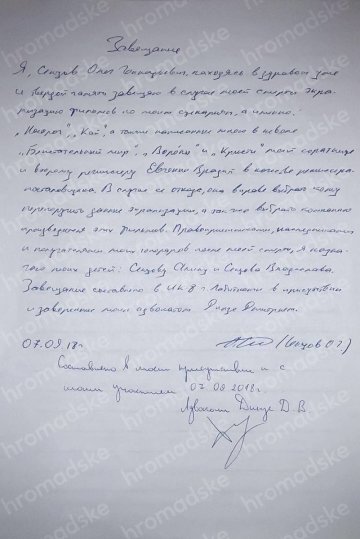 Завещание
Я, Сенцов Олег Геннадьевич, находясь в здравом уме
и твердой памяти завещаю в случае моей смерти экра-
низацию фильмов по моим сценариям, а именно:
"Носорог", "Кай", а также написанные мною в неволе
мир", и моей соратнице
и второму режиссеру Евгении Врадий в качестве режиссера-
постановщика. В случае ее отказа, она вправе выбрать кому
перепоручить данные экранизации, а так же выбрать компанию
производителя этих фильмов. Правоприемниками, наследниками
и получателями моих гонораров после моей смерти, я назна-
чаю моих детей: Сенцову Алину и Сенцова Владислава.
Завещание составлено в ИК 8 г. Лабытнанги в присутствии
и заверенное моим адвокатом Динзе Дмитрием.
07.08.18г. (Сенцов О.Г.)
Составлено в моем присутствии и с
моим участием 07.08.2018г.
Адвокат Динзе Д.В.
hromadske